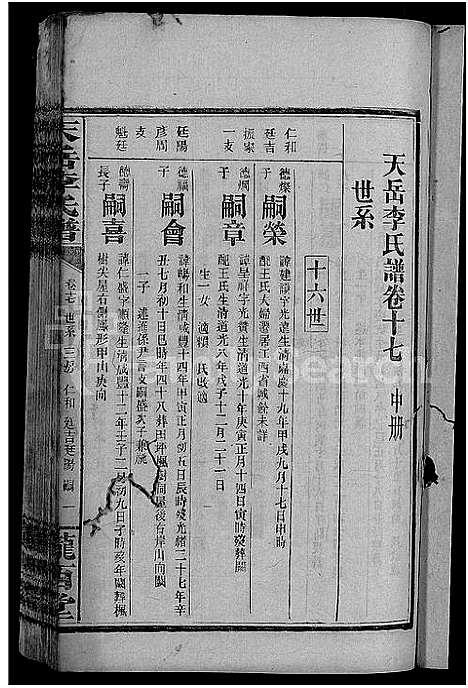 天岳李氏譜卷十七 中册
世系
十六世
仁和
廷吉
振家
一支
德燦
子
嗣榮
諱建謨字光遠生清嘉慶十九年甲戌九月十七日申時
配王氏夫婦遷居江西省城餘未詳
德燗
子
嗣章
諱呈祥字光養生清道光十年庚寅正月十四日寅時歿葬闕
配王氏生清道光八年戊子十二月二十二日
生一女 適賴 氏收適
廷陽
彥周
支
德福
子
嗣會
諱暢和生清咸豐十四年甲寅正月初五日辰時歿光緒三十七年辛
丑七月初十日巳時年四十八葬田坪楓樹洞屋後右岸山向闕
一子 達蓮係尹言女嗣盛次子兼祧
魁廷
長子
德壽
嗣喜
諱仁盛字順擎生清咸豐十二年壬子二月初九日子時歿年闕葬楓
樹尖屋右側虎形甲山庚向
天岳李氏譜
卷十七 世系 三房 仁和 廷吉廷陽 嗣 一
隴西堂